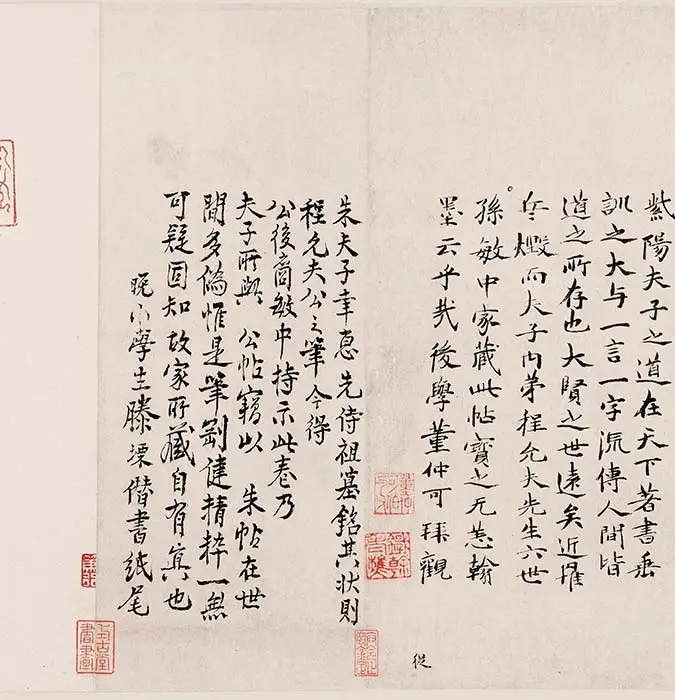 紫陽夫子之道在天下著書垂
訓之大与一言一字流傳人間皆
道之所存也大賢之世遠矣近罹
兵燬而夫子内弟程允夫先生六世
孫敏中家藏此帖寶之无恙翰
墨云乎㦲後學董仲可拜觀
朱夫子幸惠先侍祖墓銘其狀則
程允夫公之筆今得
公後裔敏中持示此卷乃
夫子所與 公帖竊以 朱帖在世
間多偽惟是筆劄健精粹一無
可疑固知故家所藏自有真也
晚小學生滕溧僭書紙尾
從